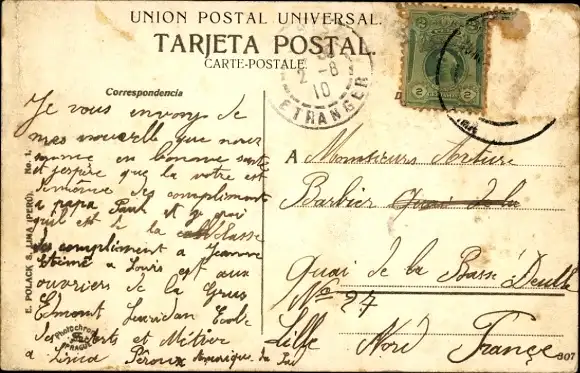 UNION POSTAL UNIVERSAL.
TARJETA POSTAL.
CARTE-POSTALE.
2
2
2-8
10
ETRANGER
Correspondencia
Je vous envoye de
mes nouvelle que nous
somme en bonne santé
et jespire que la votre est
de même des compliment
a papa Paul et
quil est a la
des compliment a Jeanne
a Louis est aux
ouvriers de la Grus
Edmont Ecole
des Arts et Métier
a Lima Pérou Amerique du
E. POLACK S. LIMA (PERÚ) No. 1.
Photochrom
PRAGUE
A Monsieurs Arture
Barbier Quai de la
Quai de la Basse Deulle
No 27
Lille Nord France
307